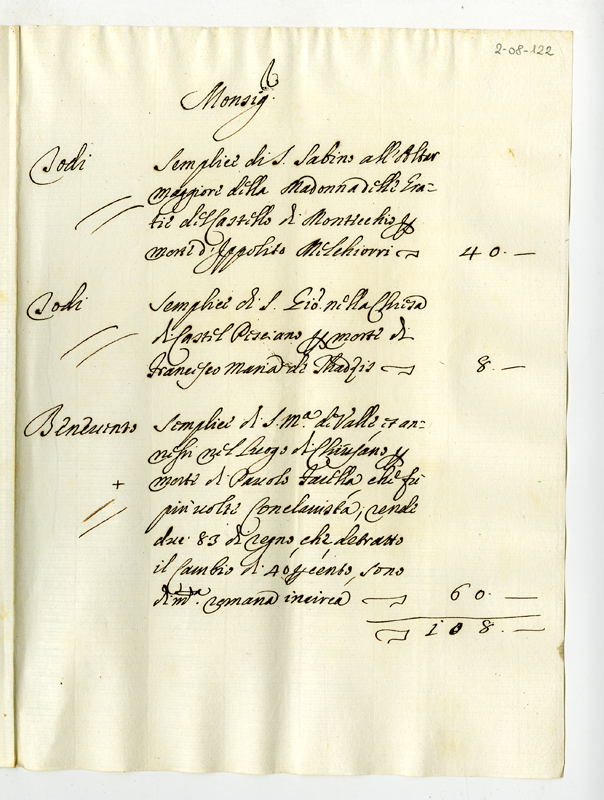 2-08-122
Monsig.r
Todi Semplice di S. Sabino all'Altar
maggiore della Madonna delle Gra=
tie del Castello di Montecchio p
morte d'Ippolito Melchiorri 40. —
Todi Semplice di S. Gio: nella Chiesa
di Castel p morte di
Francesco Maria de 8. —
Benevento Semplice di S. M.a di Valle et an=
nessi nel luogo di Chiusano p
+ morte di Pauolo che fù
più volte Conclavista; rende
due. 83 di regno, che detratto
il Cambio di 40 p cento, sono
di m.ta romana incirca 60. —
108. —